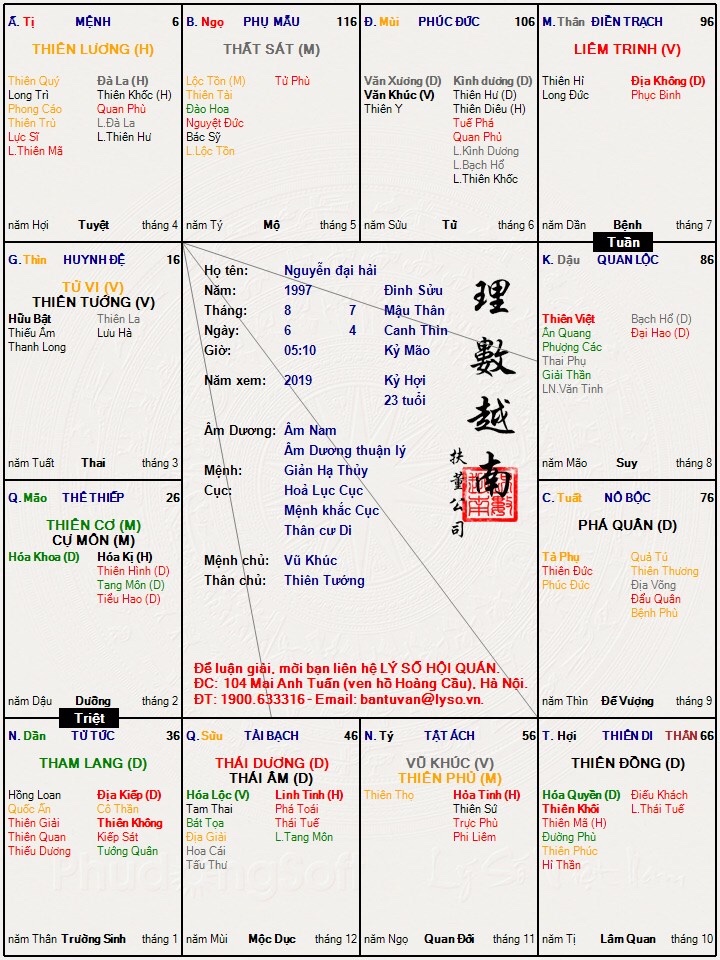 Ấ. Tị MỆNH 6
THIÊN LƯƠNG (H)
Thiên Quý Đà La (H)
Long Trì Thiên Khốc (H)
Phong Cáo Quan Phù
Thiên Trù L.Đà La
Lực Sĩ L.Thiên Hư
L.Thiên Mã
năm Hợi Tuyệt tháng 4
B. Ngọ PHỤ MẪU 116
THẤT SÁT (M)
Lộc Tồn (M) Tử Phù
Thiên Tài
Đào Hoa
Nguyệt Đức
Bác Sỹ
L.Lộc Tồn
năm Tý Mộ tháng 5
Đ. Mùi PHÚC ĐỨC 106
Văn Xương (D) Kình dương (D)
Văn Khúc (V) Thiên Hư (D)
Thiên Y Thiên Diêu (H)
Tuế Phá
Quan Phủ
L.Kình Dương
L.Bạch Hổ
L.Thiên Khốc
năm Sửu Tử tháng 6
M. Thân ĐIỀN TRẠCH 96
LIÊM TRINH (V)
Thiên Hỉ Địa Không (D)
Long Đức Phục Binh
năm Dần Bệnh tháng 7
Tuần
G. Thìn HUYNH ĐỆ 16
TỬ VI (V)
THIÊN TƯỚNG (V)
Hữu Bật Thiên La
Thiếu Âm Lưu Hà
Thanh Long
năm Tuất Thai tháng 3
Họ tên: Nguyễn đại hải
Năm: 1997 Đinh Sửu
Tháng: 8 7 Mậu Thân
Ngày: 6 4 Canh Thìn
Giờ: 05:10 Kỷ Mão
Năm xem: 2019 Kỷ Hợi
23 tuổi
Âm Dương: Âm Nam
Âm Dương thuận lý
Mệnh: Giản Hạ Thủy
Cục: Hoả Lục Cục
Mệnh khắc Cục
Thân cư Di
Mệnh chủ: Vũ Khúc
Thân chủ: Thiên Tướng
理數越南
扶董公司
Để luận giải, mời bạn liên hệ LÝ SỐ HỘI QUÁN.
ĐC: 104 Mai Anh Tuấn (ven hồ Hoàng Cầu), Hà Nội.
ĐT: 1900.633316 - Email: bantuvan@lyso.vn.
K. Dậu QUAN LỘC 86
Thiên Việt Bạch Hổ (D)
Ân Quang Đại Hao (D)
Phượng Các
Thai Phụ
Giải Thần
LN.Văn Tinh
năm Mão Suy tháng 8
Q. Mão THÊ THIẾP 26
THIÊN CƠ (M)
CỰ MÔN (M)
Hóa Khoa (D) Hóa Kị (H)
Thiên Hình (D)
Tang Môn (D)
Tiểu Hao (D)
năm Dậu Dưỡng tháng 2
Triệt
C. Tuất NÔ BỘC 76
PHÁ QUÂN (D)
Tả Phụ Quả Tú
Thiên Đức Thiên Thương
Phúc Đức Địa Võng
Đẩu Quân
Bệnh Phù
năm Thìn Đế Vượng tháng 9
N. Dần TỬ TỨC 36
THAM LANG (D)
Hồng Loan Địa Kiếp (D)
Quốc Ấn Cô Thần
Thiên Giải Thiên Không
Thiên Quan Kiếp Sát
Thiếu Dương Tướng Quân
năm Thân Trường Sinh tháng 1
Q. Sửu TÀI BẠCH 46
THÁI DƯƠNG (D)
THÁI ÂM (D)
Hóa Lộc (V) Linh Tinh (H)
Tam Thai Phá Toái
Bát Tọa Thái Tuế
Địa Giải L.Tang Môn
Hoa Cái
Tấu Thư
năm Mùi Mộc Dục tháng 12
N. Tý TẬT ÁCH 56
VŨ KHÚC (V)
THIÊN PHỦ (M)
Thiên Thọ Hỏa Tinh (H)
Thiên Sứ
Trực Phù
Phi Liêm
năm Ngọ Quan Đới tháng 11
T. Hợi THIÊN DI THÂN 66
THIÊN ĐỒNG (D)
Hóa Quyền (D) Điếu Khách
Thiên Khôi L.Thái Tuế
Thiên Mã (H)
Đường Phù
Thiên Phúc
Hỉ Thần
năm Tị Lâm Quan tháng 10